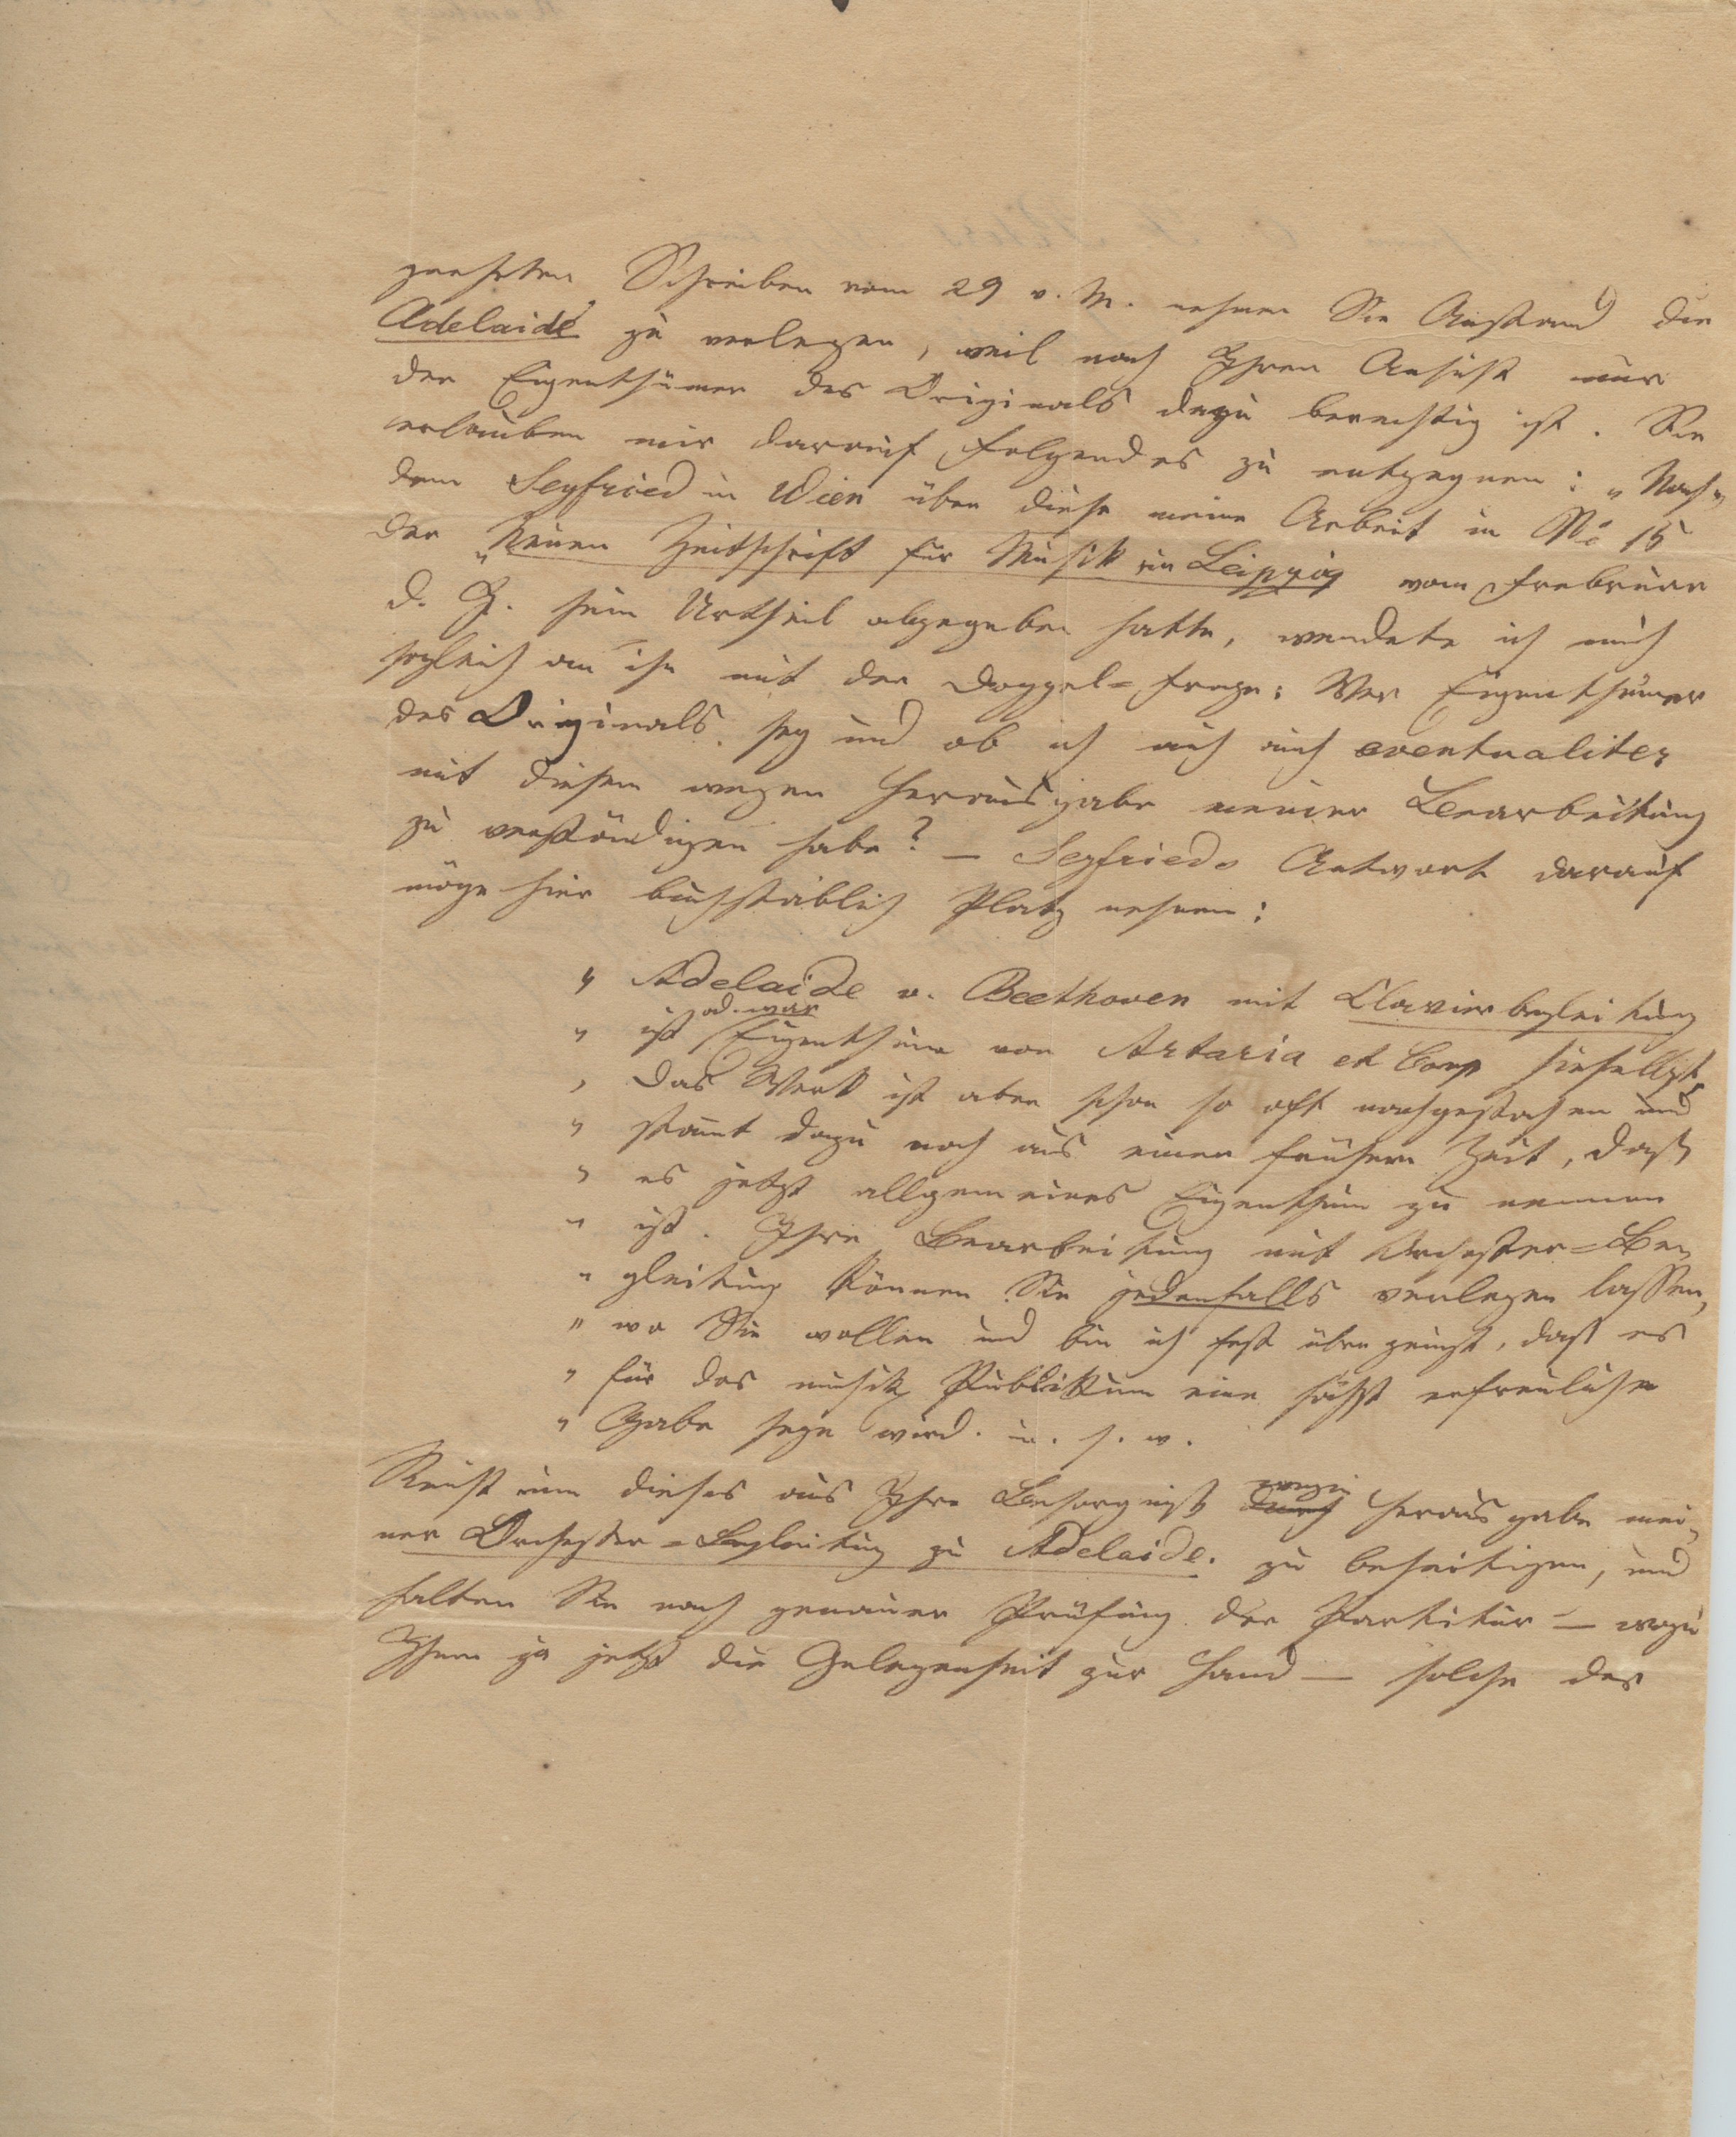 geehrten Schreiben vom 29 v. M. nehmen Sie Anstand die
Adelaide zu verlegen, weil nach Ihrer Ansicht nur
der Eigenthümer des Originals dazu berechtig ist. Sie
erlauben mir darauf Folgendes zu entgegnen: „Nach„
dem Seyfried in Wien über diese meine Arbeit in No 15
der „Neuen Zeitschrift für Musik in Leipzig vom Februar
d. J. sein Urtheil abgegeben hatte, wendete ich mich
sogleich an ihn mit der Doppel=Frage: Wer Eigenthümer
des Originals sey und ob ich mich auch eventualiter
mit diesem wegen Herausgabe meiner Bearbeitung
zu verständigen habe? — Seyfrieds Antwort darauf
möge hier buchstäblich Platz nehmen:
„ Adelaide v. Beethoven mit Clavierbegleitung
„ ist od. war Eigenthum von Artaria et Comp hieselbst,
„ das Werk ist aber schon so oft nachgestochen und
„ stamt dazu noch aus einer frühern Zeit, daß
„ es jetzt allgemeines Eigenthum zu nennen
„ ist. Ihre Bearbeitung mit Orchester=Be„
„ gleitung können Sie jedenfalls verlegen lassen,
„ wo Sie wollen und bin ich fest überzeugt, daß es
„ für das musik. Publikum eine höchst erfreuliche
„ Gabe seyn wird. u. s. w.
Reicht nun dieses aus Ihre Besorgniß wegen durch Herausgabe mei„
ner Orchester=Begleitung zu Adelaide. zu beseitigen, und
halten Sie nach genauer Prüfung der Partitur — wozu
Ihnen ja jetzt die Gelegenheit zur Hand — solche des